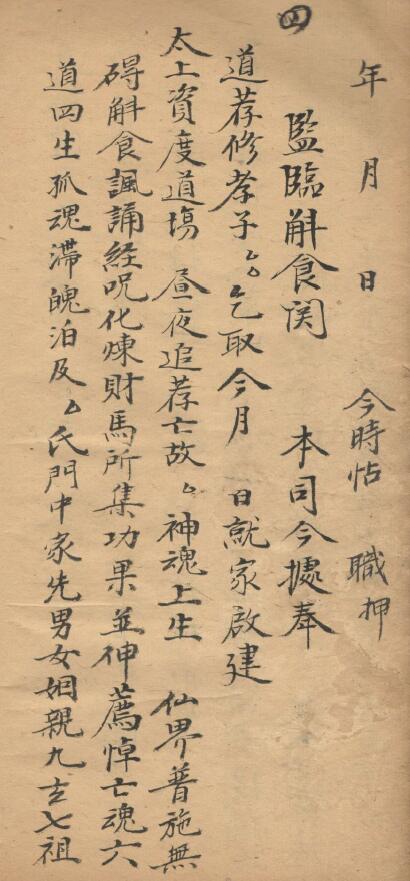 年 月 日 今時帖 職押
四
監臨斛食関 本司今據奉
道荐修孝子厶厶乞取今月 日就家啟建
太上資度道塲 昼夜追荐亡故厶神魂上生 仙界普施無
碍斛食諷誦経呪化煉財馬所集功果並伸薦悼亡魂六
道四生孤魂滯魄洎及厶氏門中家先男女姻親九玄七祖